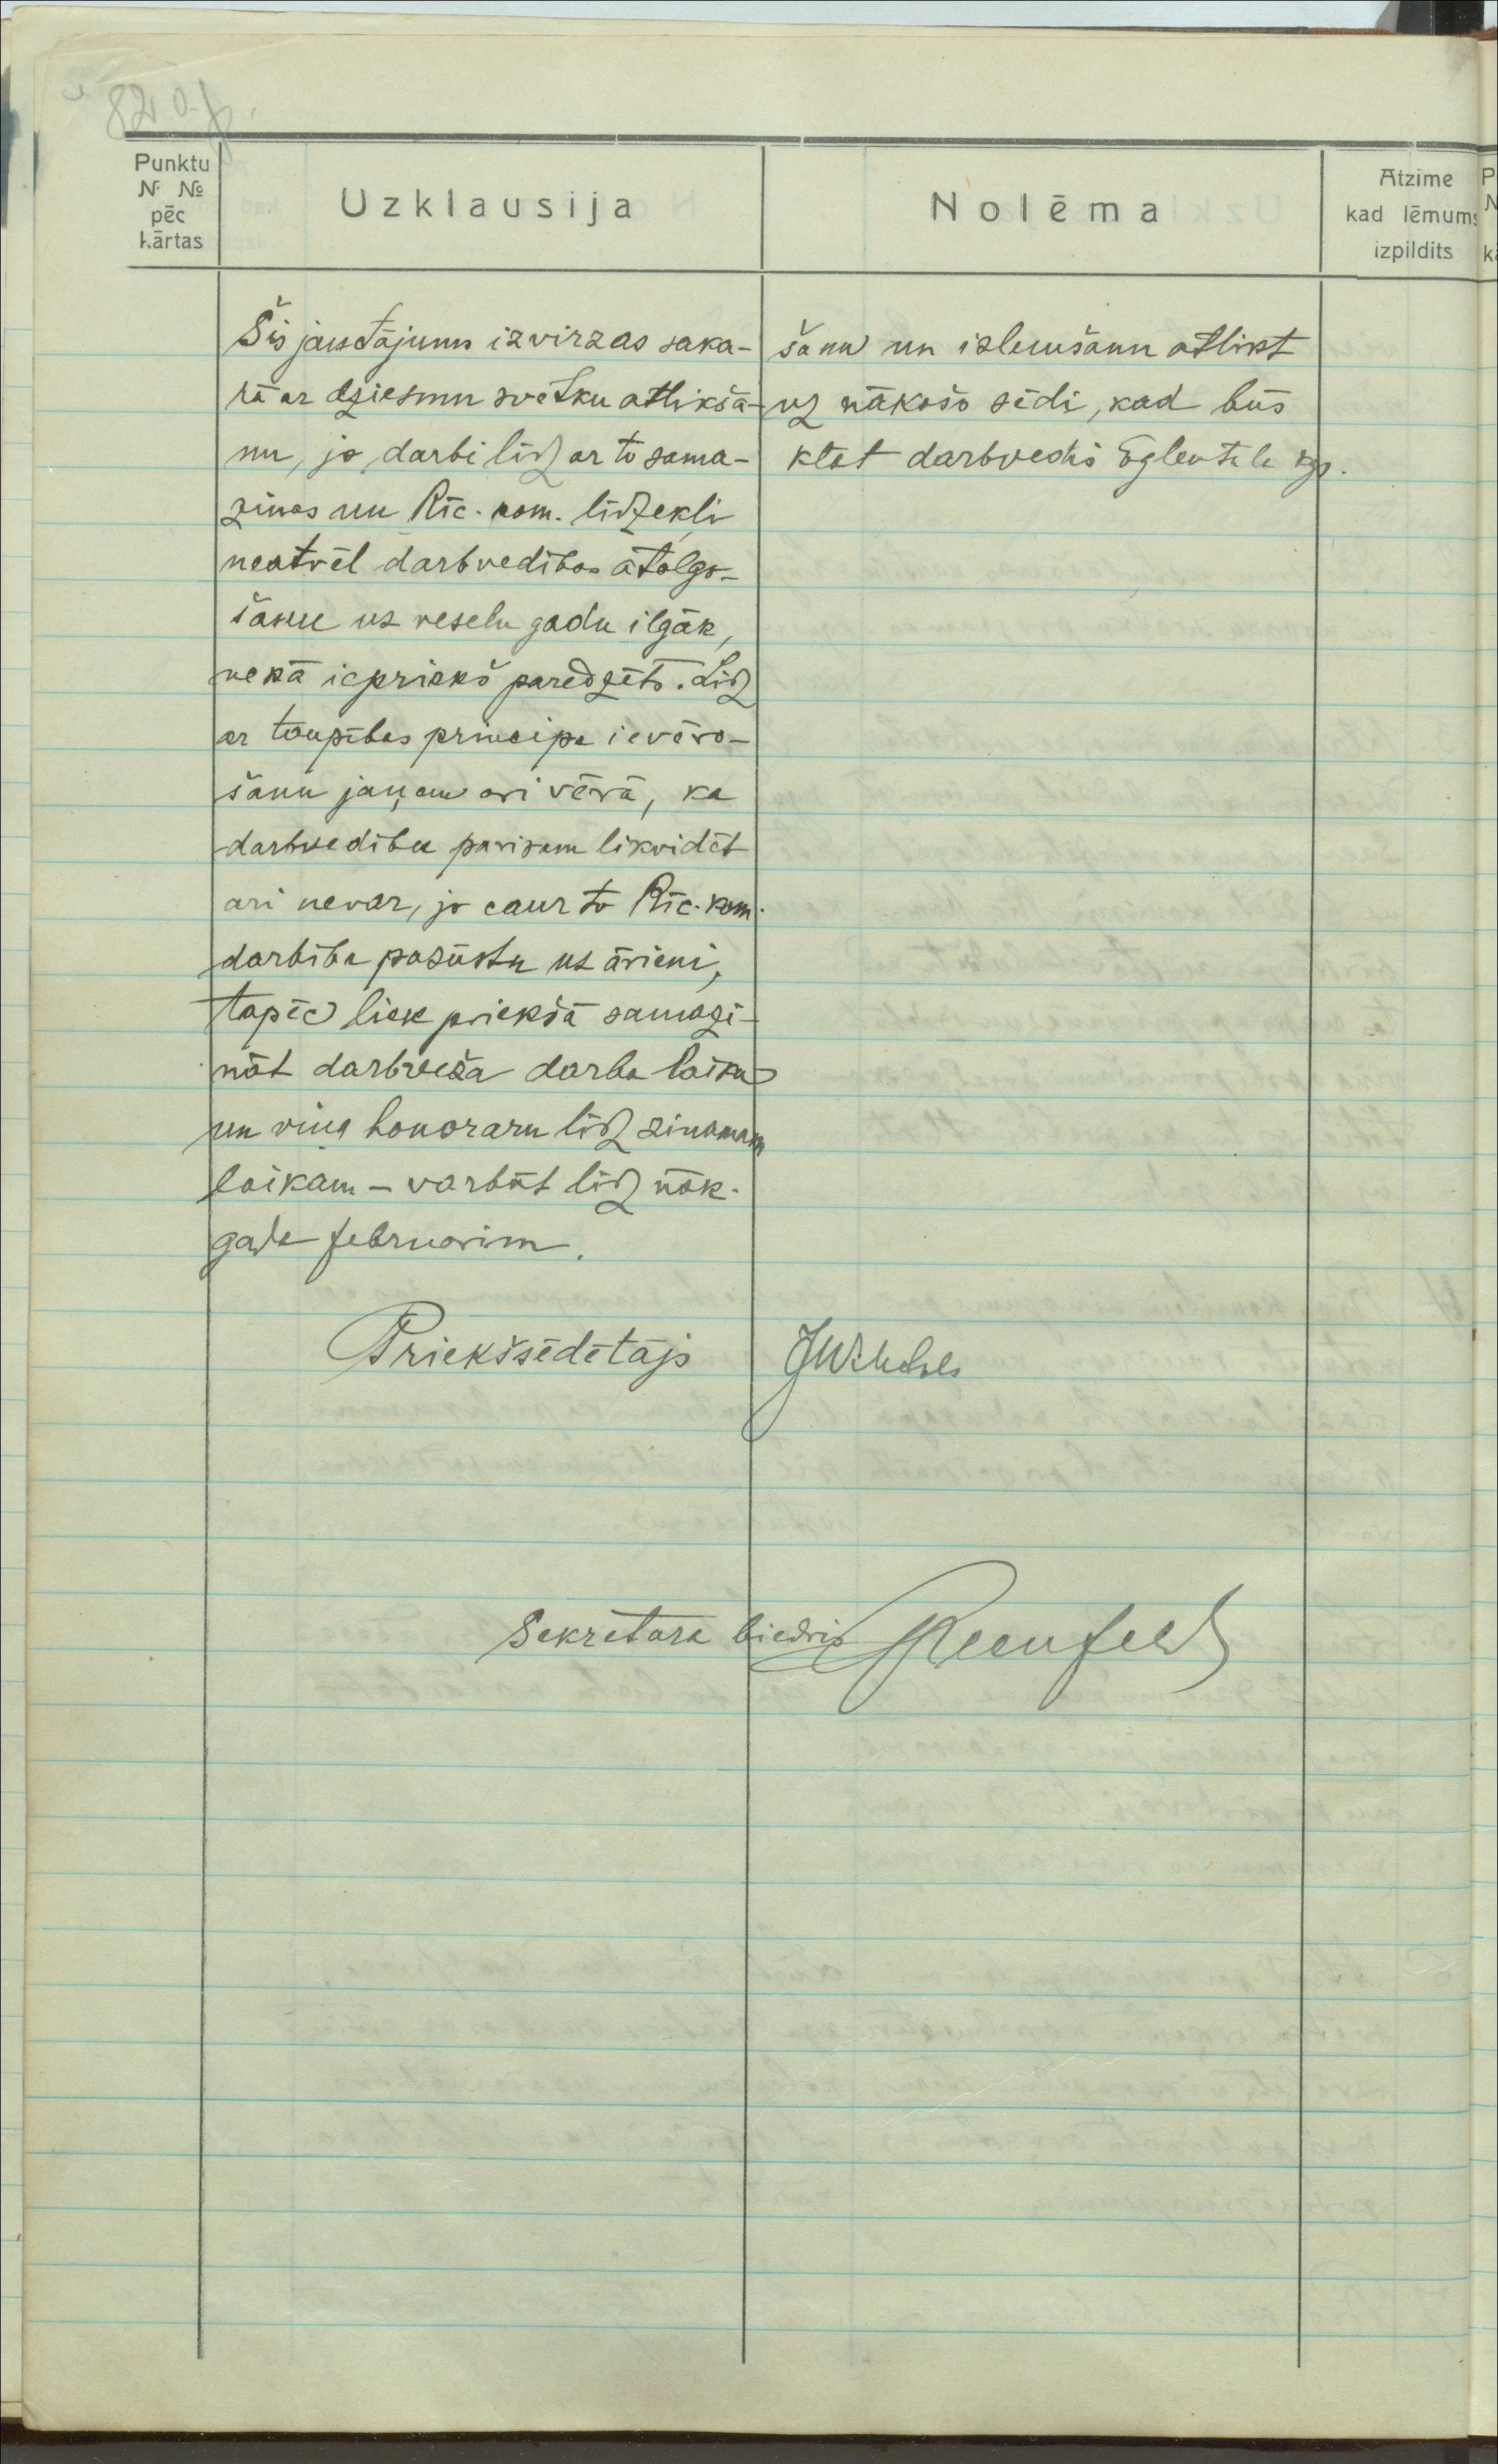 82 o.p.
Punktu
№ №
pēc
kārtas
Uzklausija
Nolēma
Atzime
kad lēmums
izpildits
Šis jautājums izvirzas saka-
rā ar dziesmu svētku atlikša-
nu, jo darbi līdz ar to sama-
zinas un Rīc. kom. līdzekļi
neatvēl darbvedības atalgo-
šanu uz veselu gadu ilgāk,
nekā iepriekš paredzēts. Līdz
ar taupības principa ievēro-
šanu jaņem arī vērā, ka
darbvedību pavisam likvidēt
ari nevar, jo caur to Rīc. kom.
darbība pazūstu uz ārieni,
tapēc liek priekšā samazi-
nāt darbveža darba laiku
un viņa honoraru līdz zinamam
laikam - varbūt līdz nāk.
gada februarim.
šanu un izlemšanu atlikt
uz nākošo sēdi, kad būs
klāt darbvedis Eglentals kgs.
Priekšsēdētājs
Sekretara biedris